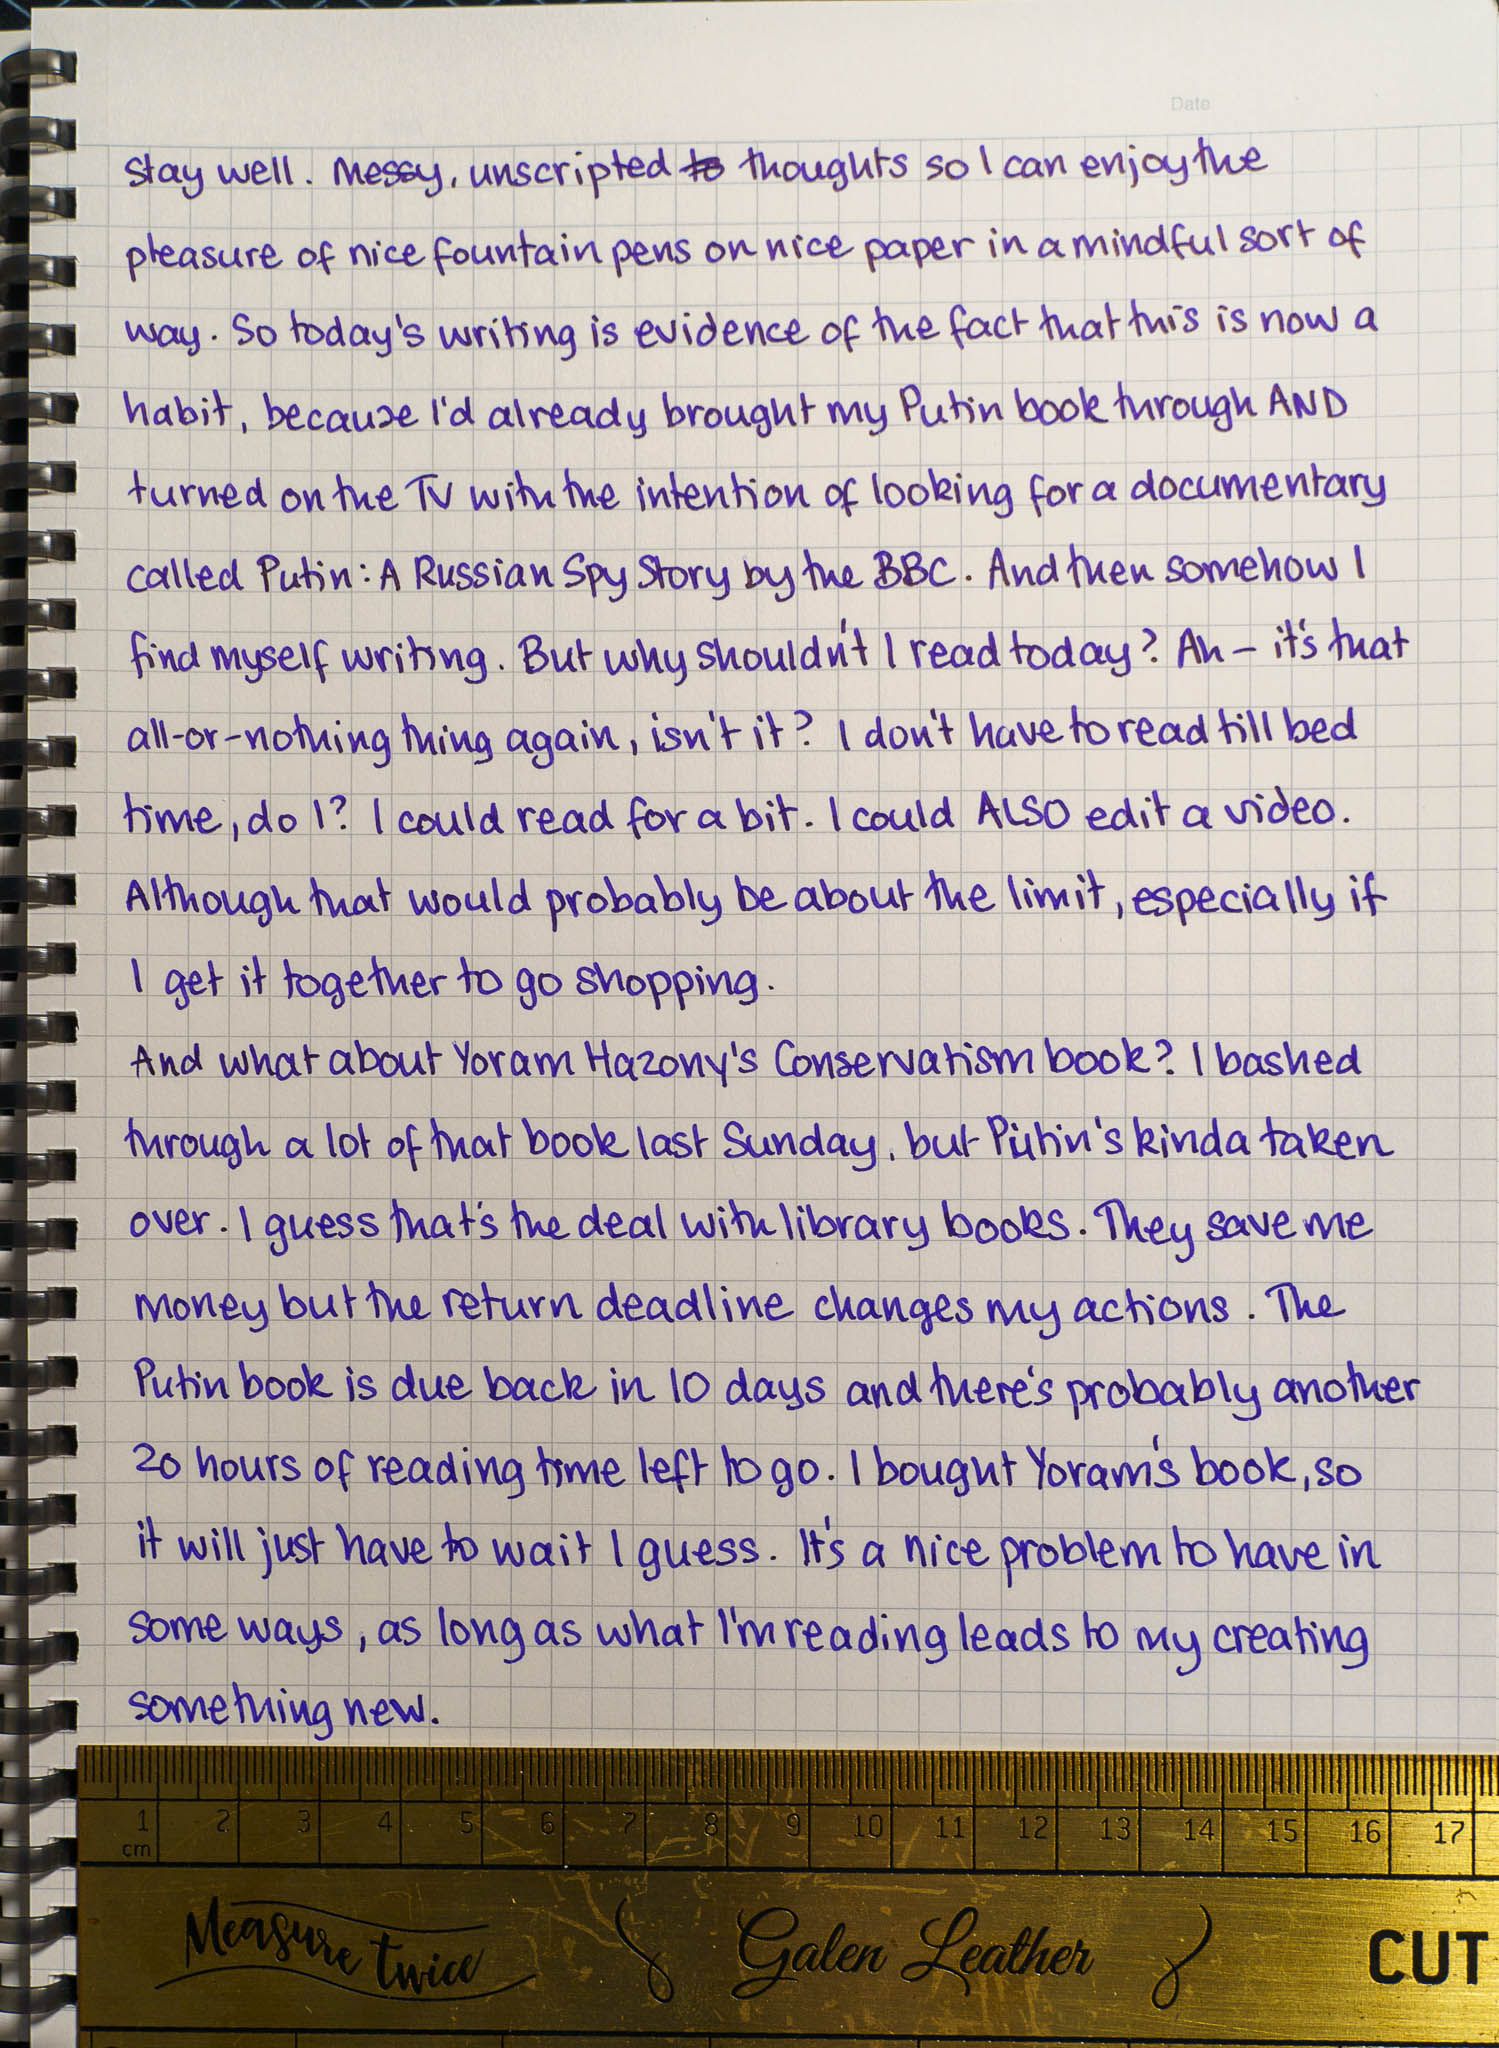 Date
Stay well. Messy, unscripted to thoughts so I can enjoy the
pleasure of nice fountain pens on nice paper in a mindful sort of
way. So today's writing is evidence of the fact that this is now a
habit, because I'd already brought my Putin book through AND
turned on the TV with the intention of looking for a documentary
called Putin: A Russian Spy Story by the BBC. And then somehow I
find myself writing. But why shouldn't I read today? Ah - it's that
all-or-nothing thing again, isn't it? I don't have to read till bed
time, do I? I could read for a bit. I could ALSO edit a video.
Although that would probably be about the limit, especially if
I get it together to go shopping.
And what about Yoram Hazony's Conservatism book? I bashed
through a lot of that book last Sunday, but Putin's kinda taken
over. I guess that's the deal with library books. They save me
money but the return deadline changes my actions. The
Putin book is due back in 10 days and there's probably another
20 hours of reading time left to go. I bought Yoram's book, so
it will just have to wait I guess. It's a nice problem to have in
some ways, as long as what I'm reading leads to my creating
something new.
1 2 3 4 5 6 7 8 9 10 11 12 13 14 15 16 17
cm
Measure twice Galen Leather CUT